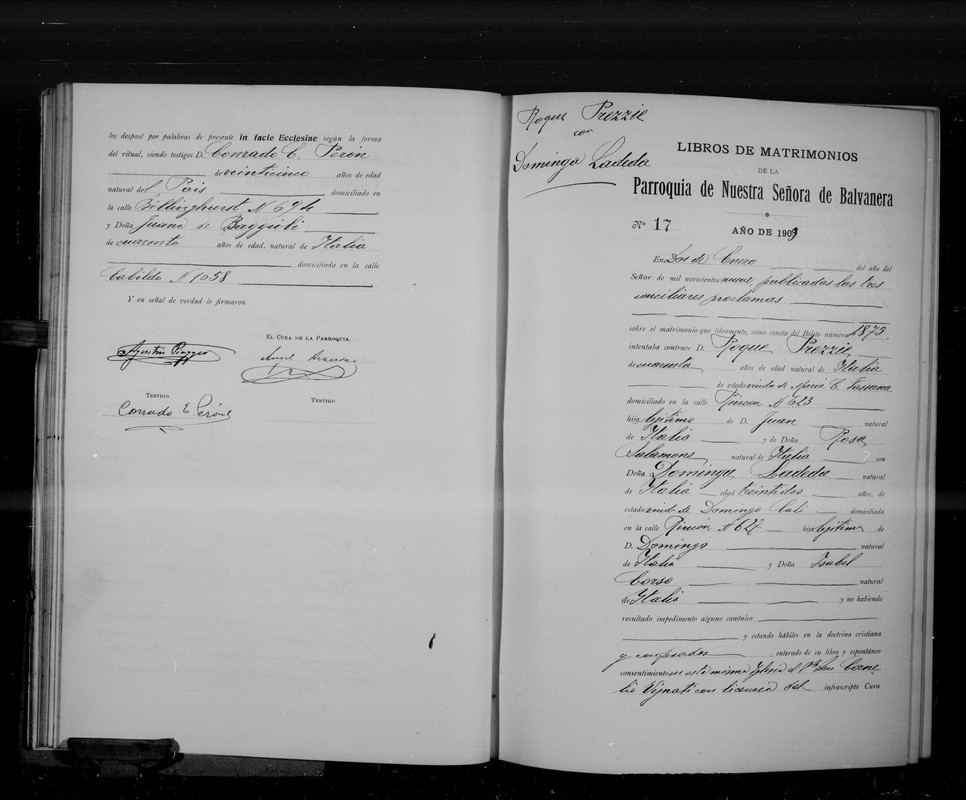 los desposé por palabras de presente in facie Ecclesiae según la forma
del ritual, siendo testigos D. Conrado E. Perón
de veinticinco años de edad
natural del Pais domiciliado en
la calle Billinghurst Nº 694
y Doña Juana de Baggioli
de cuarenta años de edad, natural de Italia
domiciliado en la calle
Cabildo Nº 1058
Y en señal de verdad lo firmaron
El Cura de la Parroquia.
Agustín Piaggio
Testigo
Testigo
Conrado E. Perón
Roque Prezzie
con
Dominga Ladeda
LIBROS DE MATRIMONIOS
DE LA
Parroquia de Nuestra Señora de Balvanera
Nº 17
AÑO DE 1909
En Dos de Enero del año del
Señor de mil novecientos nueve, publicadas las tres
conciliares proclamas
sobre el matrimonio que libremente, como consta del Boleto número 1875
intentaba contraer D. Roque Prezzie
de cuarenta años de edad natural de Italia
de estado viudo de María C.
domiciliado en la calle Rincon Nº 623
hijo legitimo de D. Juan natural
de Italia y de Doña Rosa
Salamone natural de Italia con
Doña Dominga Ladeda natural
de Italia edad treintidos años, de
estado viuda de Domingo Cali domiciliada
en la calle Rincon Nº 627 hija legitima de
D. Domingo natural
de Italia y Doña Isabel
Corso natural
de Italia y no habiendo
resultado impedimento alguno canónico
y estando hábiles en la doctrina cristiana
y confesados enterado de su libre y espontáneo
consentimiento en esta misma Iglesia el Pbro Don Corne
lio Vignati con licencia del infrascripto Cura